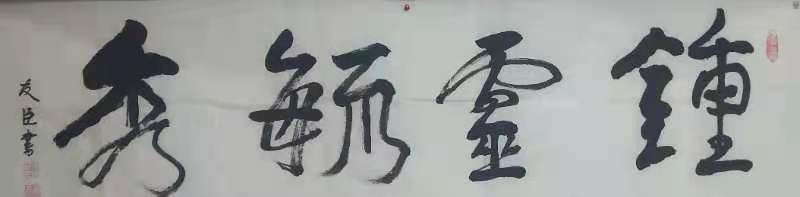 鍾靈毓秀
友臣書